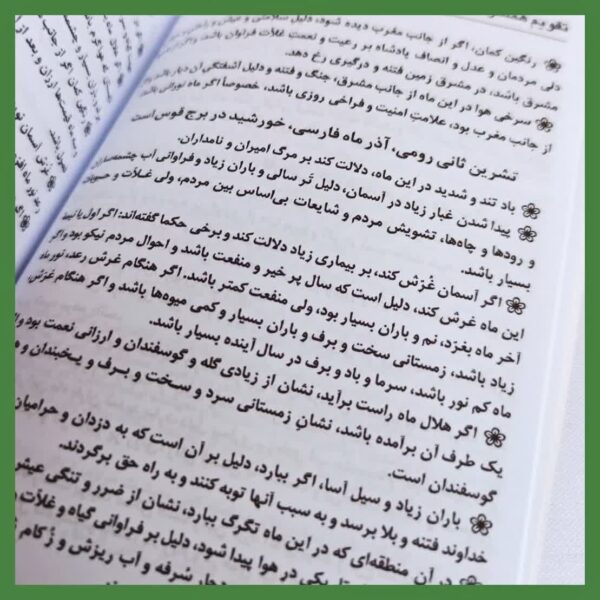 تقویم همسران
رنگین کمان، اگر از جانب مغرب دیده شود، دلیل سلامتی و
دلی مردمان و عدل و انصاف پادشاه بر رعیت و نعمت غلّات فراوان باشد، و اگر از جانب
مشرق باشد، در مشرق زمین فتنه و درگیری رخ دهد.
سرخی هوا در این ماه از جانب مشرق، جنگ و فتنه و دلیل آشفتگی آن دیار باشد و
از جانب مغرب بود، علامتِ امنیت و فراخی روزی باشد، خصوصاً اگر ماه نورانی باشد
تشرین ثانی رومی، آذر ماه فارسی، خورشید در برج قوس است
باد تند و شدید در این ماه، دلالت کند بر مرگ امیران و نامداران.
پیدا شدن غبار زیاد در آسمان، دلیل تَر سالی و باران زیاد و فراوانی آب چشمه‌ساران
و رودها و چاه‌ها، تشویش مردم و شایعات بی‌اساس بین مردم، ولی غلّات و حبوبات
بسیار باشد.
اگر آسمان غُرّش کند، بر بیماری زیاد دلالت کند و برخی حکما گفته‌اند: اگر اول یا نیمه
این ماه غرش کند، دلیل است که سال پر خیر و منفعت باشد و احوال مردم نیکو بود و اگر
آخر ماه بغرّد، نم و باران بسیار بود، ولی منفعت کمتر باشد. اگر هنگام غرش رعد، نور ماه
زیاد باشد، زمستانی سخت و برف و باران بسیار و کمی میوه‌ها باشد و اگر هنگام غرّش،
ماه کم نور باشد، سرما و باد و برف در سال آینده بسیار باشد.
اگر هلال ماه راست برآید، نشان از زیادی گله و گوسفندان و ارزانی نعمت بود و اگر
یک طرف آن برآمده باشد، نشانِ زمستانی سرد و سخت و برف و یخبندان و
گوسفندان است.
باران زیاد و سیل آسا، اگر ببارد، دلیل بر آن است که به دزدان و حرامیان
خداوند فتنه و بلا برسد و به سبب آنها توبه کنند و به راه حق برگردند.
در آن منطقه‌ای که در این ماه تگرگ ببارد، نشان از ضرر و تنگی عیش
یکی در هوا پیدا شود، دلیل بر فراوانی گیاه و غلّات و
دچار سُرفه و آب ریزش و زُکام